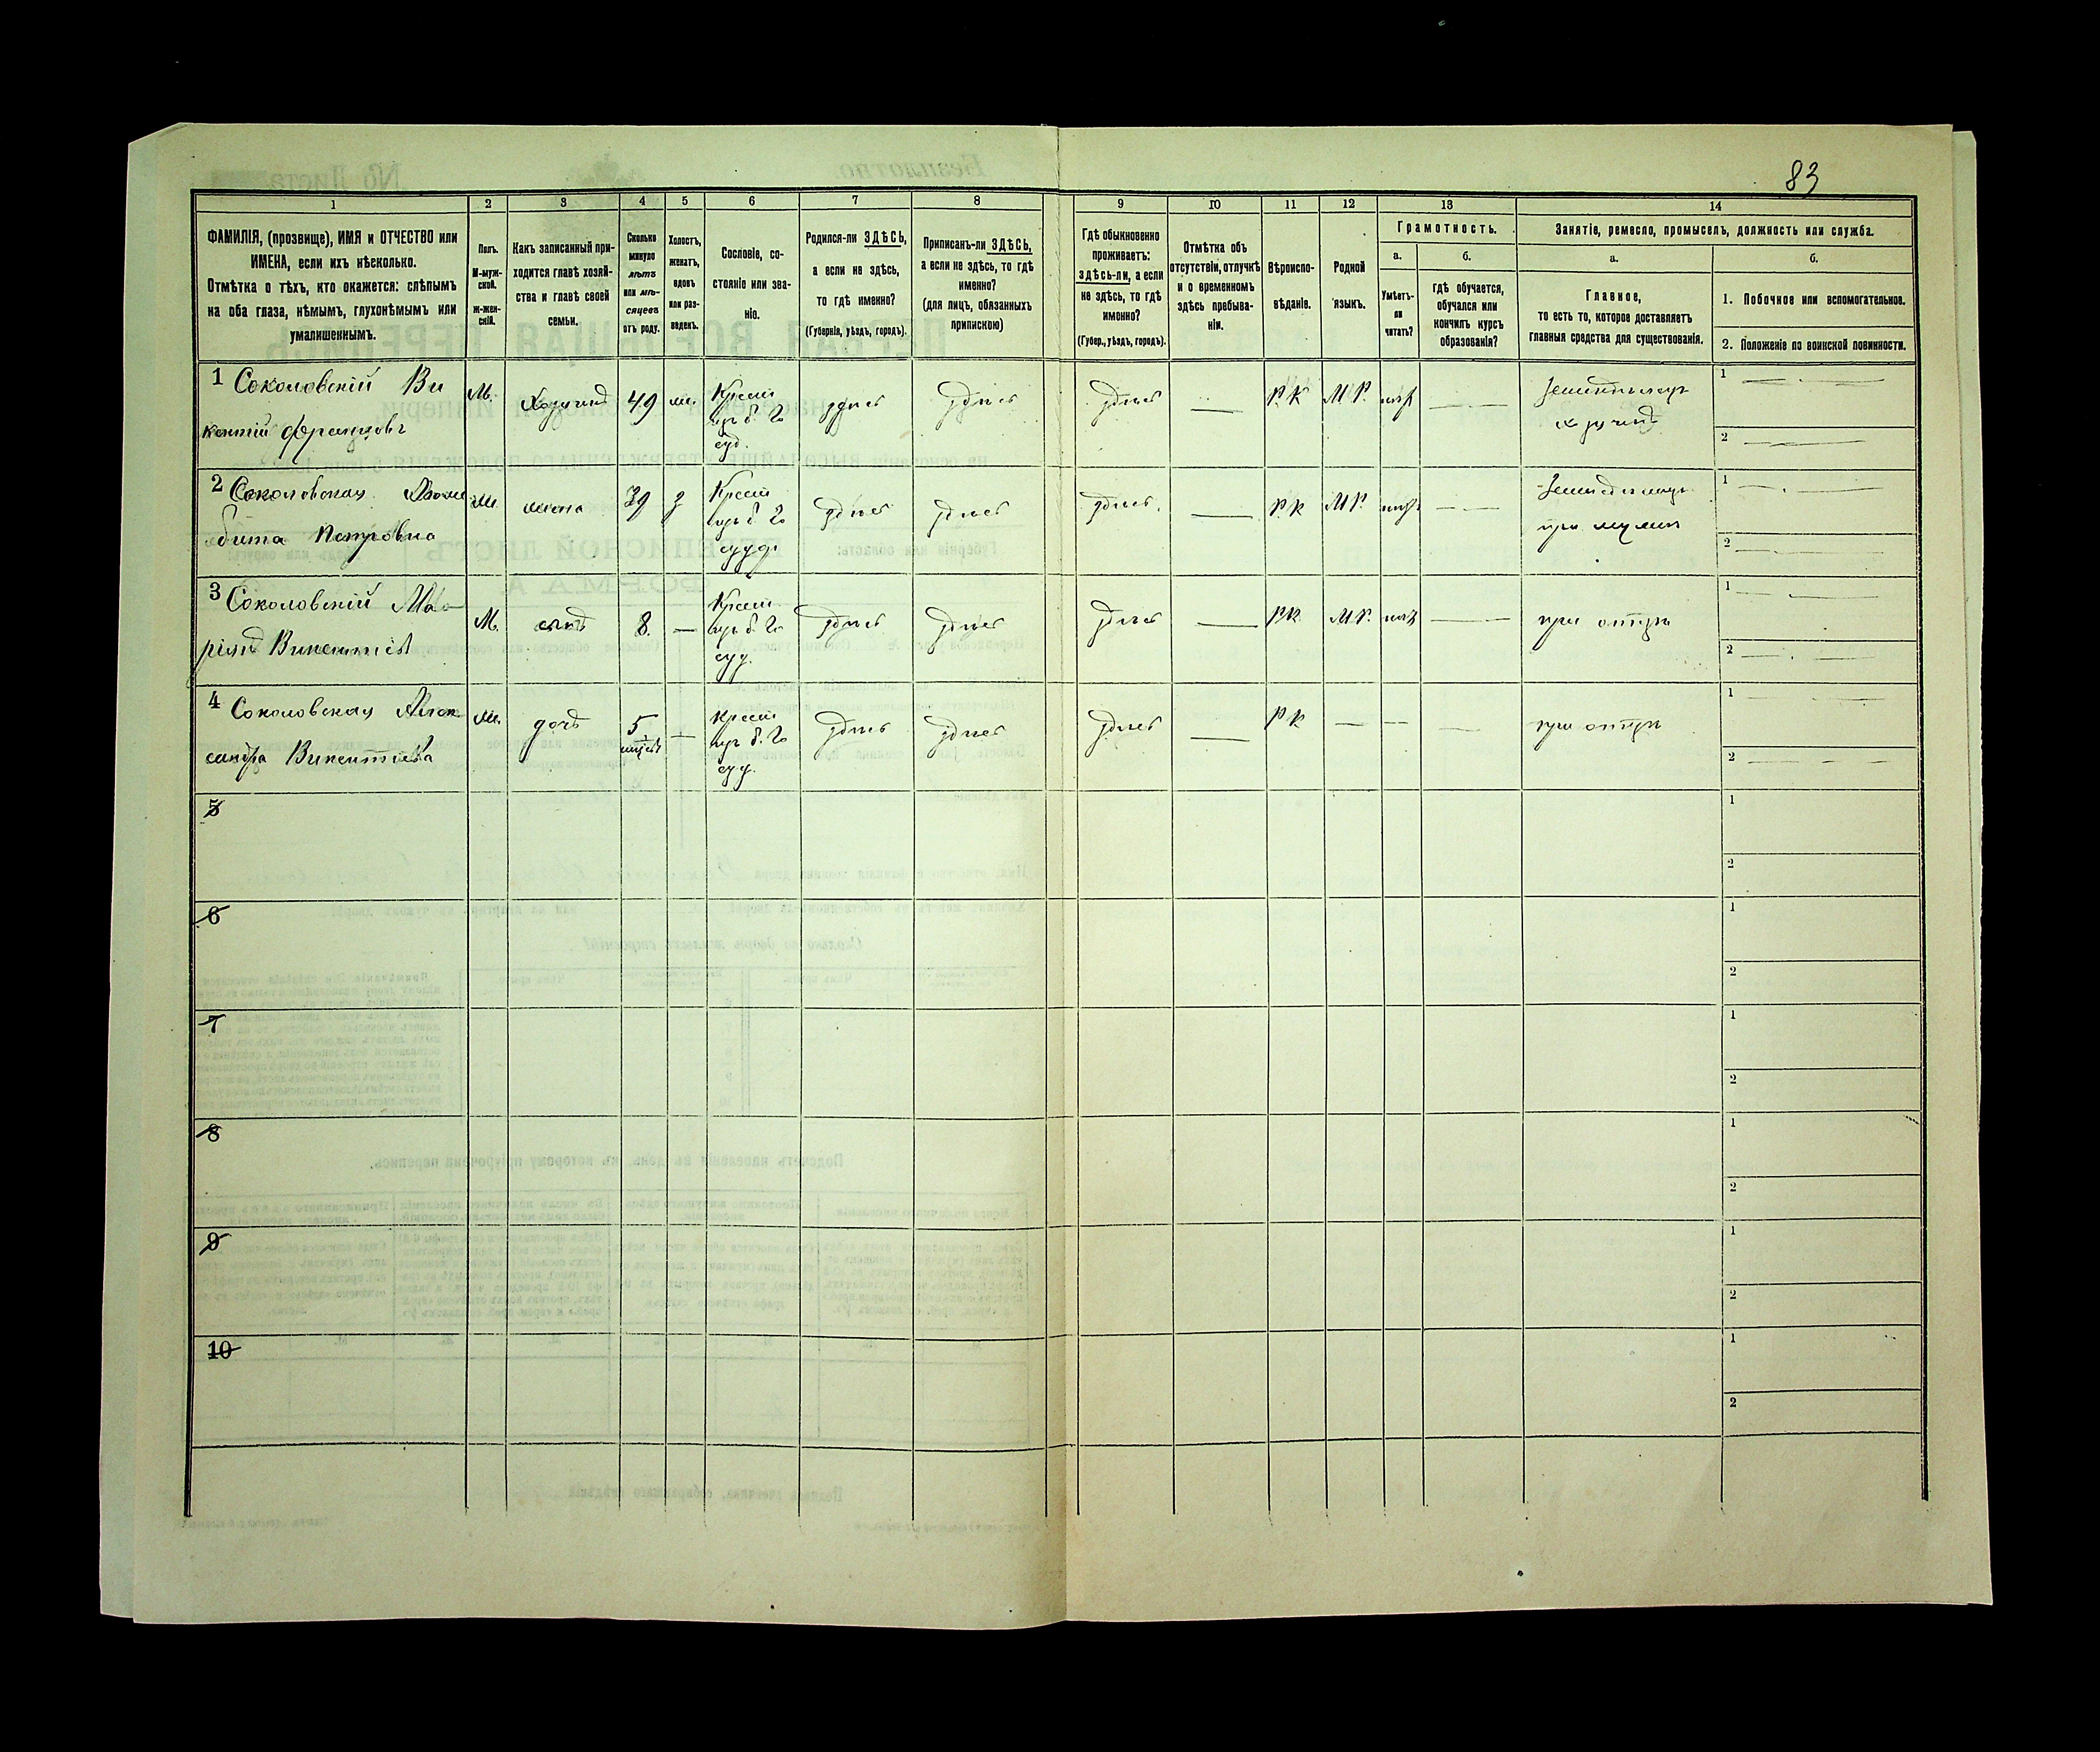 83
1
2
3
4
5
6
7
8
9
10
11
12
13
14
ФАМИЛІЯ, (прозвище), ИМЯ и ОТЧЕСТВО или
ИМЕНА, если ихъ нѣсколько.
Отмѣтка о тѣхъ, кто окажется: слѣпымъ
на оба глаза, нѣмымъ, глухонѣмымъ или
умалишеннымъ.
Полъ.
М-муж-
ской.
Ж-жен-
скій.
Какъ записанный при-
ходится главѣ хозяй-
ства и главѣ своей
семьи.
Сколько
минуло
лѣтъ
или мѣ-
сяцевъ
отъ роду.
Холостъ,
женатъ,
вдовъ
или раз-
веденъ.
Сословіе, со-
стояніе или зва-
ніе.
Родился-ли ЗДѢСЬ,
а если не здѣсь,
то гдѣ именно?
(Губернія, уѣздъ, городъ).
Приписанъ-ли ЗДѢСЬ,
а если не здѣсь, то гдѣ
именно?
(для лицъ, обязанныхъ
припискою)
Гдѣ обыкновенно
проживаетъ:
здѣсь-ли, а если
не здѣсь, то гдѣ
именно?
(Губер., уѣздъ, городъ).
Отмѣтка объ
отсутствіи, отлучкѣ
и о временномъ
здѣсь пребыва-
ніи.
Вѣроиспо-
вѣданіе.
Родной
языкъ.
Грамотность.
а.
Умѣетъ-
ли
читать?
б.
гдѣ обучается,
обучался или
кончилъ курсъ
образованія?
Занятіе, ремесло, промыселъ, должность или служба.
а.
Главное,
то есть то, которое доставляетъ
главныя средства для существованія.
б.
1. Побочное или вспомогательное.
2. Положеніе по воинской повинности.
1 Соколовскій Ви
кентій Францовъ
М. Хозяинъ 49 ж. Крест
изъ б. Го
суд.
здѣсь здѣсь здѣсь — Р.К М.Р. нѣт — земледѣлецъ
хозяинъ
1 —
2 —
2 Соколовская
Петровна
ж. жена 39 з Крест
изъ б. Го
суд.
здѣсь здѣсь здѣсь. — Р.К М.Р. нѣт — земледѣлецъ
при мужѣ
1 —
2 —
3 Соколовскій Ма
ріянъ Викентіевъ
М. сынъ 8. — Крест
изъ б. Го
суд.
здѣсь здѣсь здѣсь — Р.К. М.Р. нѣт — при отцѣ
1 —
2 —
4 Соколовская Алек
сандра Викентіева
ж. дочь 5
мѣсяц
— Крест
изъ б. Го
суд.
здѣсь здѣсь здѣсь — Р.К — — — при отцѣ
1 —
2 —
5
1
2
6
1
2
7
1
2
8
1
2
9
1
2
10
1
2